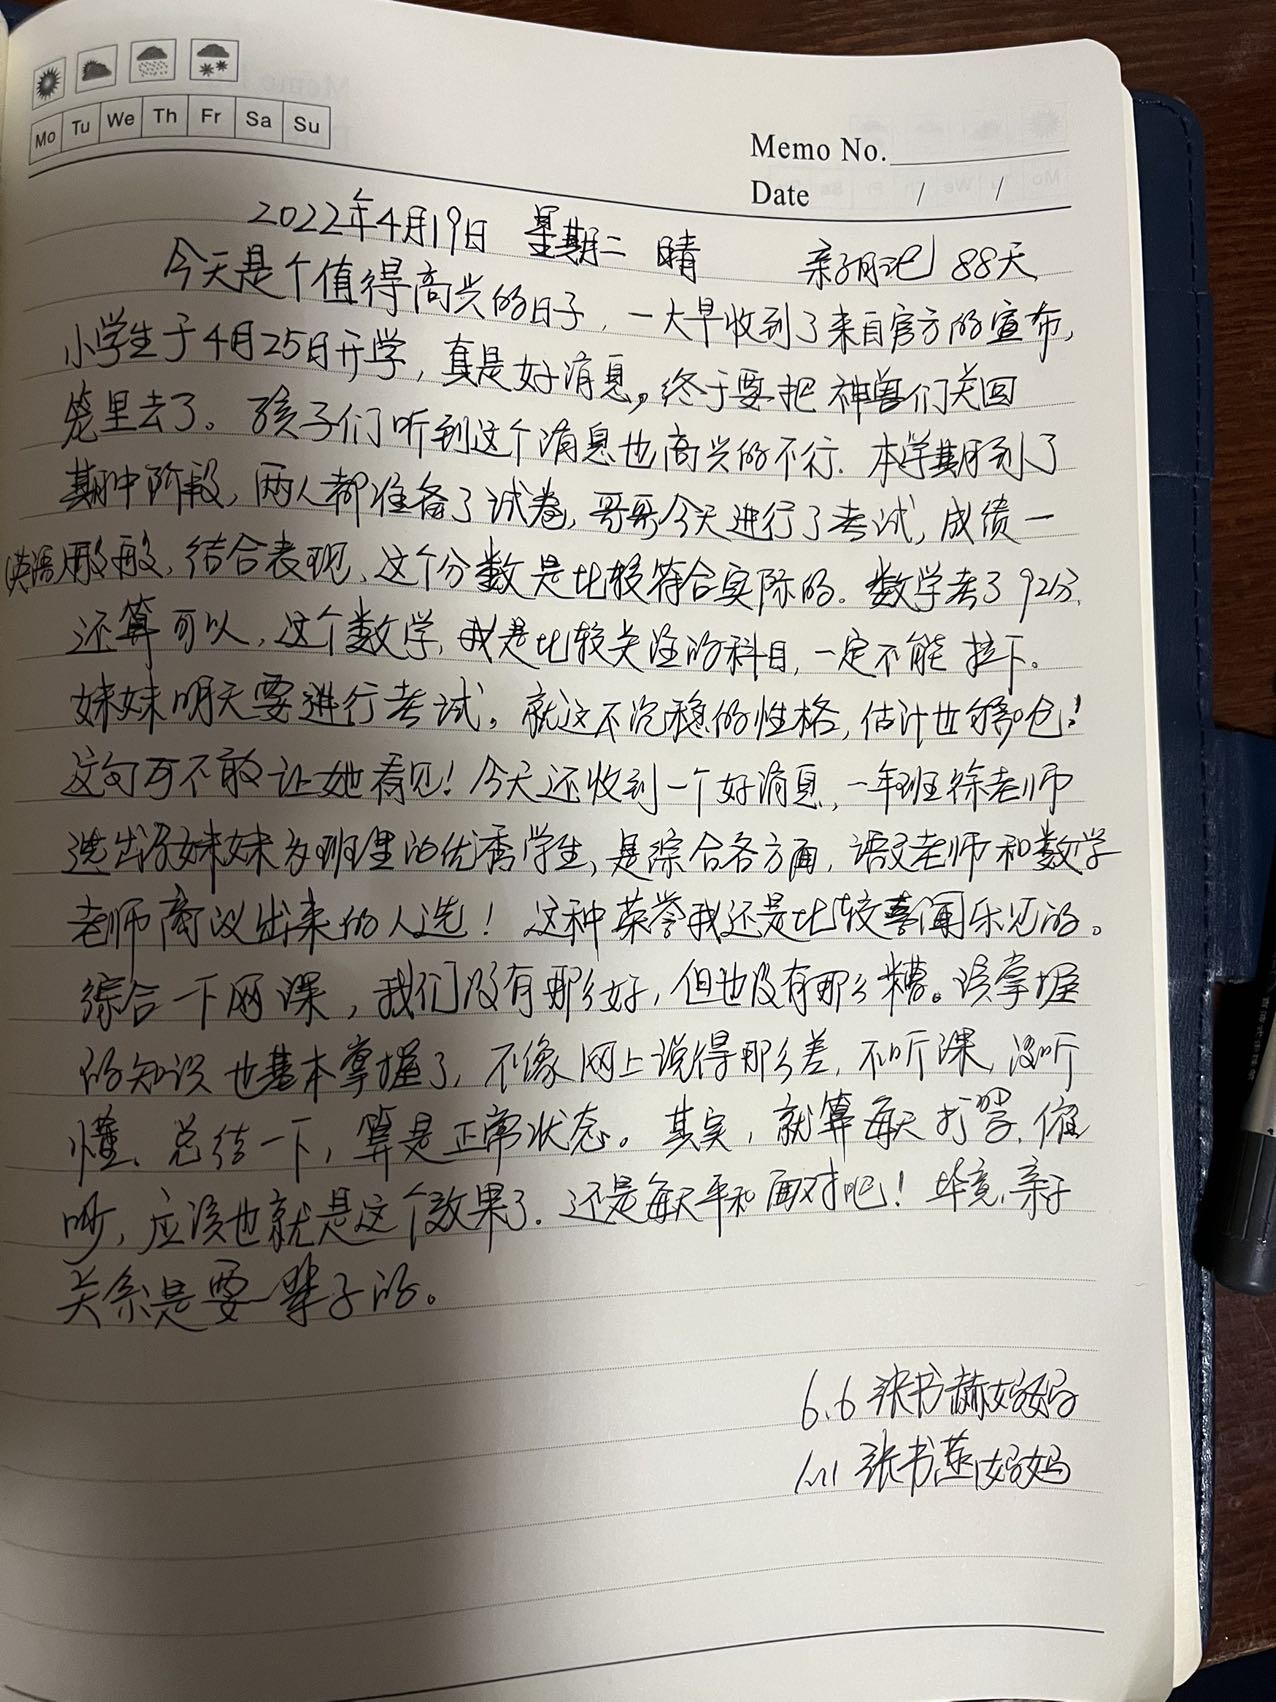 Mo Tu We Th Fr Sa Su
Memo No.
Date / /
2022年4月19日 星期二 晴 亲子日记 88天
今天是个值得高兴的日子,一大早收到了来自官方的宣布,
小学生于4月25日开学,真是好消息。终于要把神兽们关回
笼里去了。孩子们听到这个消息也高兴的不行.本学期到了
期中阶段,两人都准备了试卷,哥哥今天进行了考试,成绩一
(英语)般般,结合表现、这个分数是比较符合实际的.数学考了92分,
还算可以,这个数学,我是比较关注的科目,一定不能拉下。
妹妹明天要进行考试。就这不沉稳的性格,估计也够呛!
这句可不敢让她看见!今天还收到一个好消息,一年班徐老师
选出了妹妹为班里的优秀学生,是综合各方面,语文老师和数学
老师商议出来的人选!这种荣誉我还是比较喜闻乐见的。
综合一下网课,我们没有那么好,但也没有那么糟。该掌握
的知识也基本掌握了,不像网上说得那么差,不听课,没听
懂、总结一下,算是正常状态。其实,就算每天打骂、催
吵,应该也就是这个效果了.还是每天平和面对吧!毕竟,亲子
关系是要一辈子的。
6.6 张书赫妈妈
1.11 张书莲妈妈